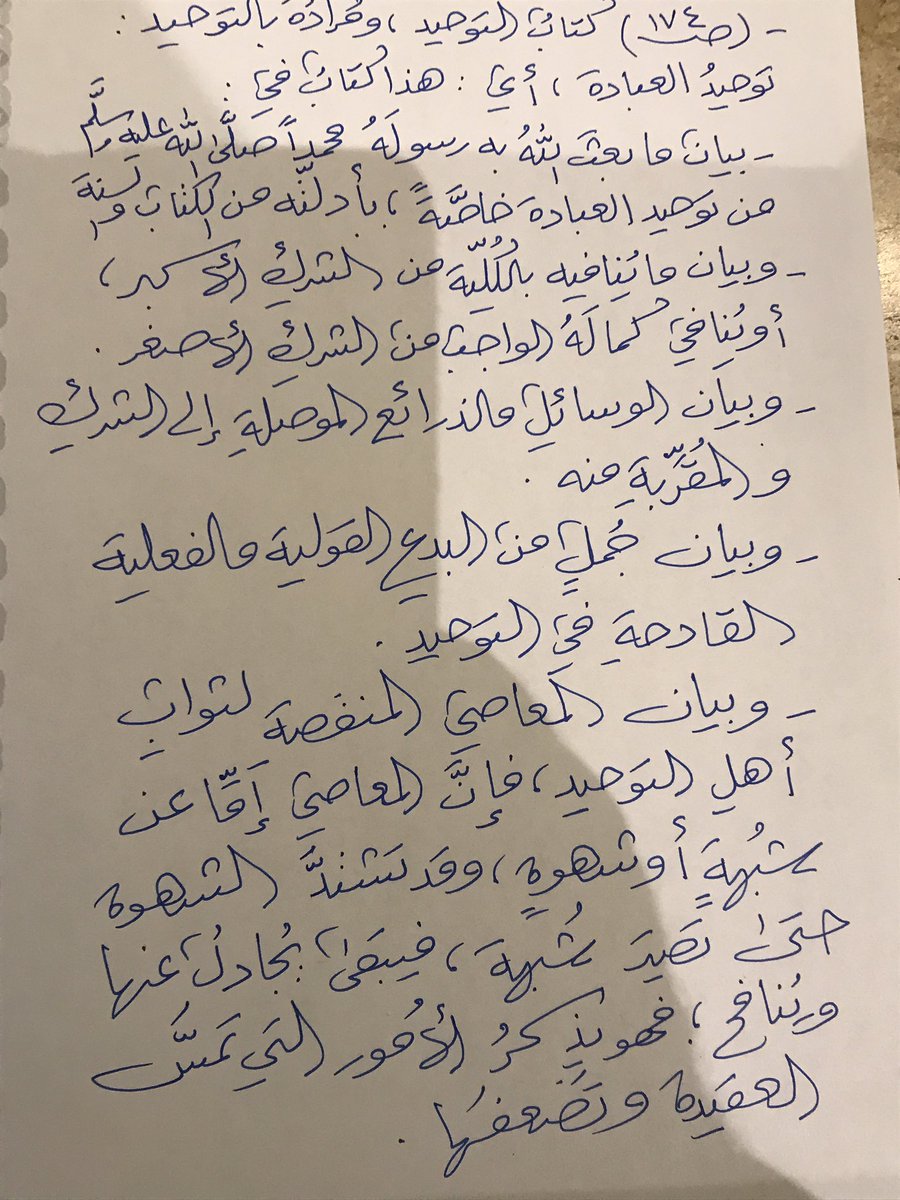 - (صـ ١٧٤) كتابُ التوحيد ، ومُرادُهُ بالتوحيد :
توحيدُ العبادة ، أي : هذا كتابٌ في :
- بيان ما بعث اللهُ به رسولَهُ محمداً صلَّى الله عليه وسلَّم
من توحيد العبادة خاصَّةً ، بأدلته من الكتاب والسنة
- وبيان ما يُنافيه بالكُلِّية من الشركِ الأكبر ،
أو يُنافي كمالَهُ الواجبَ من الشركِ الأصغر .
- وبيان الوسائلِ والذرائع الموصلةِ إلى الشركِ
والمُقرِّبةِ منه .
- وبيان جُملٍ من البدعِ القولية والفعلية
القادحةِ في التوحيدِ .
- وبيان المعاصي المنقصة لثوابِ
أهلِ التوحيد ، فإنَّ المعاصي إمَّا عن
شُبهةٍ أو شهوةٍ ، وقد تشتدُّ الشهوة
حتى تصيرَ شُبهة ، فيبقى يُجادلُ عنها
ويُنافح ؛ فهو يذكرُ الأمور التي تمسُّ
العقيدة وتُضعفُها .